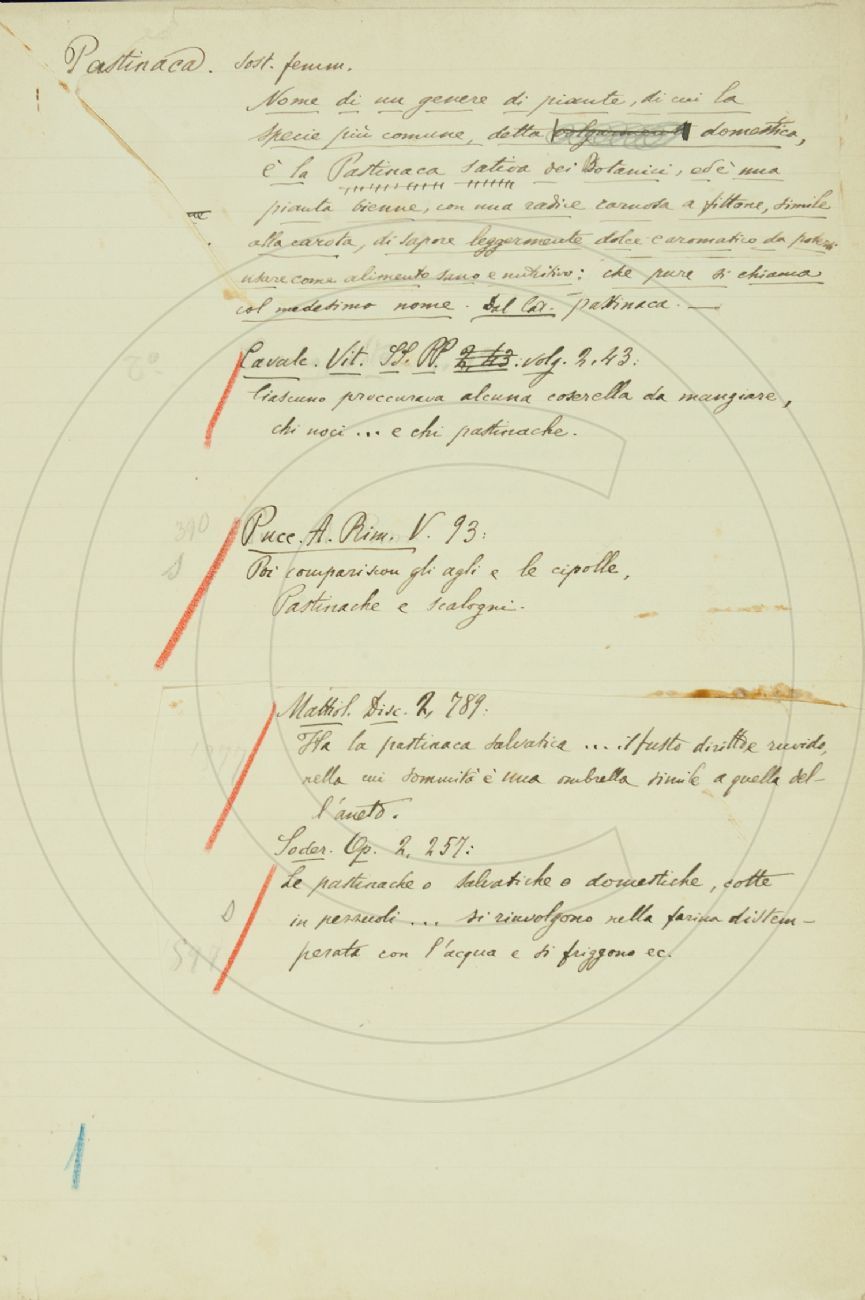 Pastinaca. Sost. femm.
Nome di un genere di piante, di cui la
specie più comune, detta volgarmente domestica,
è la Pastinaca sativa dei Botanici, ed è una
pianta bienne, con una radice carnosa a fittone, simile
alla carota, di sapore leggermente dolce e aromatico da potersi
usare come alimento sano e nutritivo: che pure si chiama
col medesimo nome. Dal lat. pastinaca. —
Cavalc. Vit. SS. PP. 2, 43. volg. 2, 43:
Ciascuno proccurava alcuna coserella da mangiare,
chi noci ... e chi pastinache.
390
Pucc. A. Rim. V. 93:
S
Poi compariscon gli agli e le cipolle,
Pastinache e scalogni.
Mattiol. Disc. 2, 789:
Ha la pastinaca salvatica ... il fusto diritto e ruvido,
nella cui sommità è una ombrella simile a quella del-
l'aneto.
Soder. Op. 2, 257:
Le pastinache o salvatiche o domestiche, cotte
in pezzuoli ... si rinvolgono nella farina distem-
perata con l'acqua e si friggono ec.
1